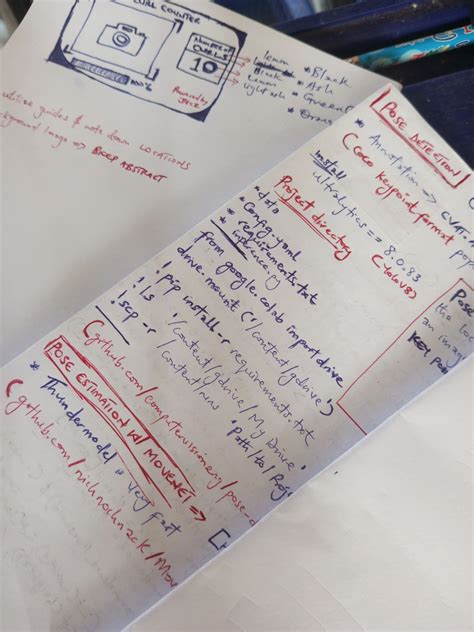 CURL COUNTER
NUMBER OF
CURLS
10
100%
Powered by
* Black
* Ash
* Green
utilize guides & note down locations
background image => BICEP ABSTRACT
POSE DETECTION
* Annotation => CVAT
(COCO keypoint format
install
ultralytics == 8.0.83
(YOLOv8)
Project directory
* data
* Config.yaml
* requirements.txt
* inference.py
from google.colab import drive
drive.mount ('/content/gdrive')
! pip install -r requirements.txt
! ls
! scp -r '/content/gdrive/My Drive'
/content/runs 'path/to/Proj
(github.com/computervisioneng/pose-d
POSE ESTIMATION W/ MOVENET =>
* Thundermodel
very fast
(github.com/nicknochnack/Mov
Pose
the
an imag
KEY PO